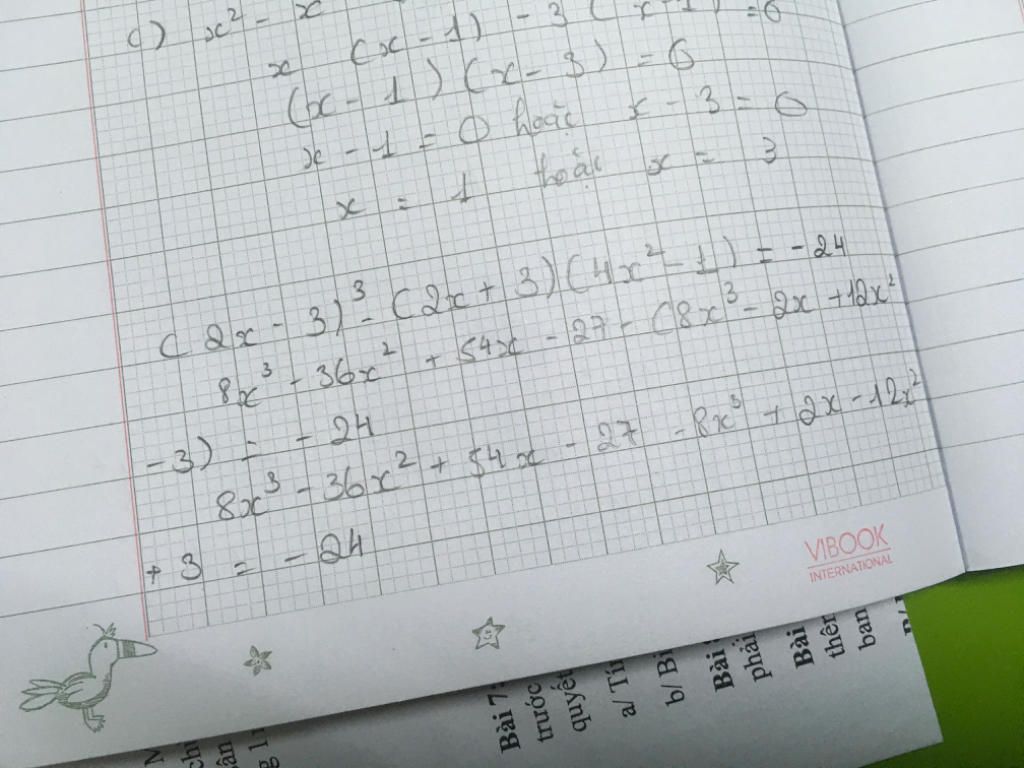 c) x² - x
x (x - 1) - 3 (x - 1) = 0
(x - 1) (x - 3) = 0
x - 1 = 0 hoặc x - 3 = 0
x = 1 hoặc x = 3
(2x - 3)³ - (2x + 3)(4x² - 1) = -24
8x³ - 36x² + 54x - 27 - (8x³ - 2x + 12x²
- 3) = - 24
8x³ - 36x² + 54x - 27 - 8x³ + 2x - 12x²
+ 3 = - 24
VIBOOK
INTERNATIONAL
Bài 7:
trước
quyết
a/ Tín
b/ Bi
Bài
phải
Bài
thên
ban